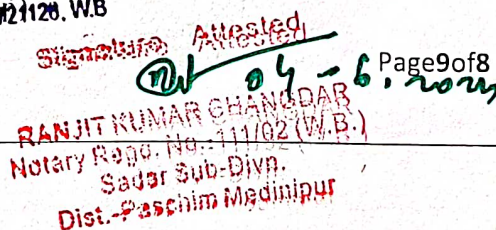 721128. W.B
Signature Attested
04-6.2024
Page9of8
RANJIT KUMAR GHANGDAR
Notary Regd. No.-111/02 (W.B.)
Sadar Sub-Divn.
Dist.-Paschim Medinipur